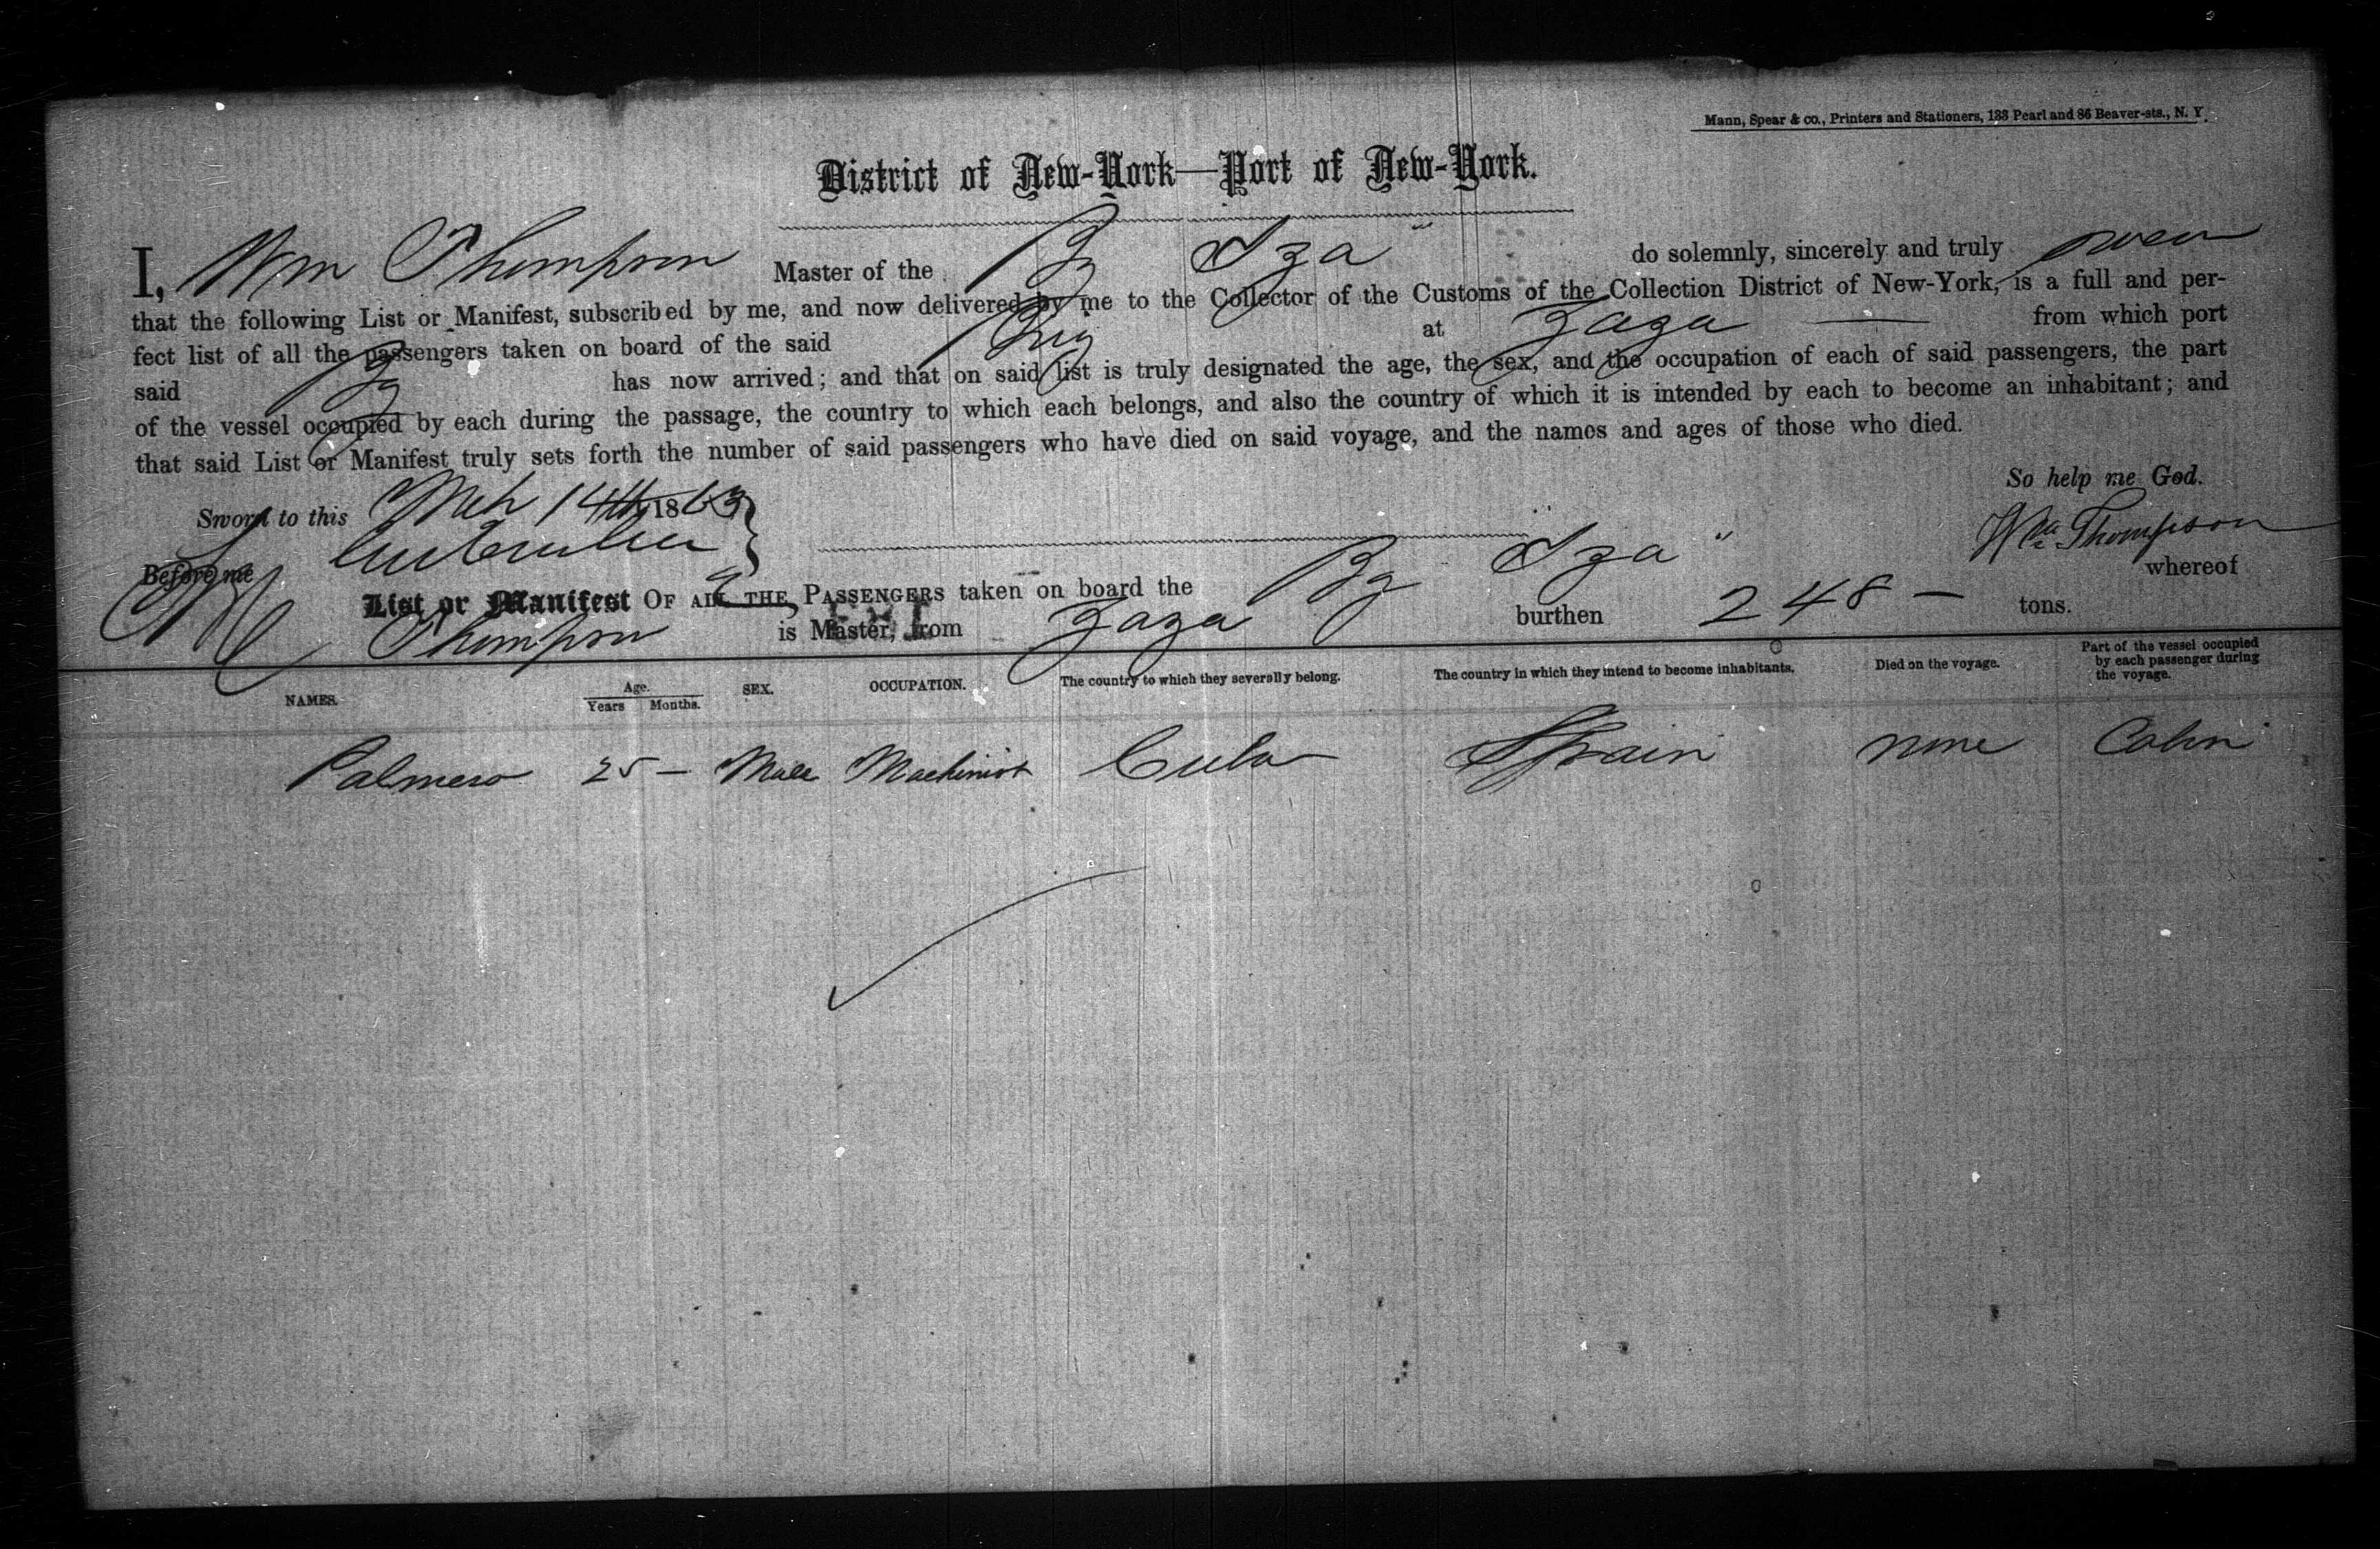 Mann, Spear & co., Printers and Stationers, 133 Pearl and 86 Beaver-sts., N. Y.
District of New-York—Port of New-York.
I, Wm Thompson Master of the Bg Iza" do solemnly, sincerely and truly swear
that the following List or Manifest, subscribed by me, and now delivered by me to the Collector of the Customs of the Collection District of New-York, is a full and per-
fect list of all the passengers taken on board of the said Brig at Zaza — from which port
said Bg has now arrived; and that on said list is truly designated the age, the sex, and the occupation of each of said passengers, the part
of the vessel occupied by each during the passage, the country to which each belongs, and also the country of which it is intended by each to become an inhabitant; and
that said List or Manifest truly sets forth the number of said passengers who have died on said voyage, and the names and ages of those who died.
So help me God.
Sworn to this Mch 14th 1863
Wm Thompson
Before me
List or Manifest OF ALL THE PASSENGERS taken on board the Bg Iza" whereof
Thompson is Master, from Zaza burthen 248 — tons.
NAMES. Age. Years Months. SEX. OCCUPATION. The country to which they severally belong. The country in which they intend to become inhabitants. Died on the voyage. Part of the vessel occupied by each passenger during the voyage.
Palmero 25 — Male Machinist Cuba Spain none Cabin